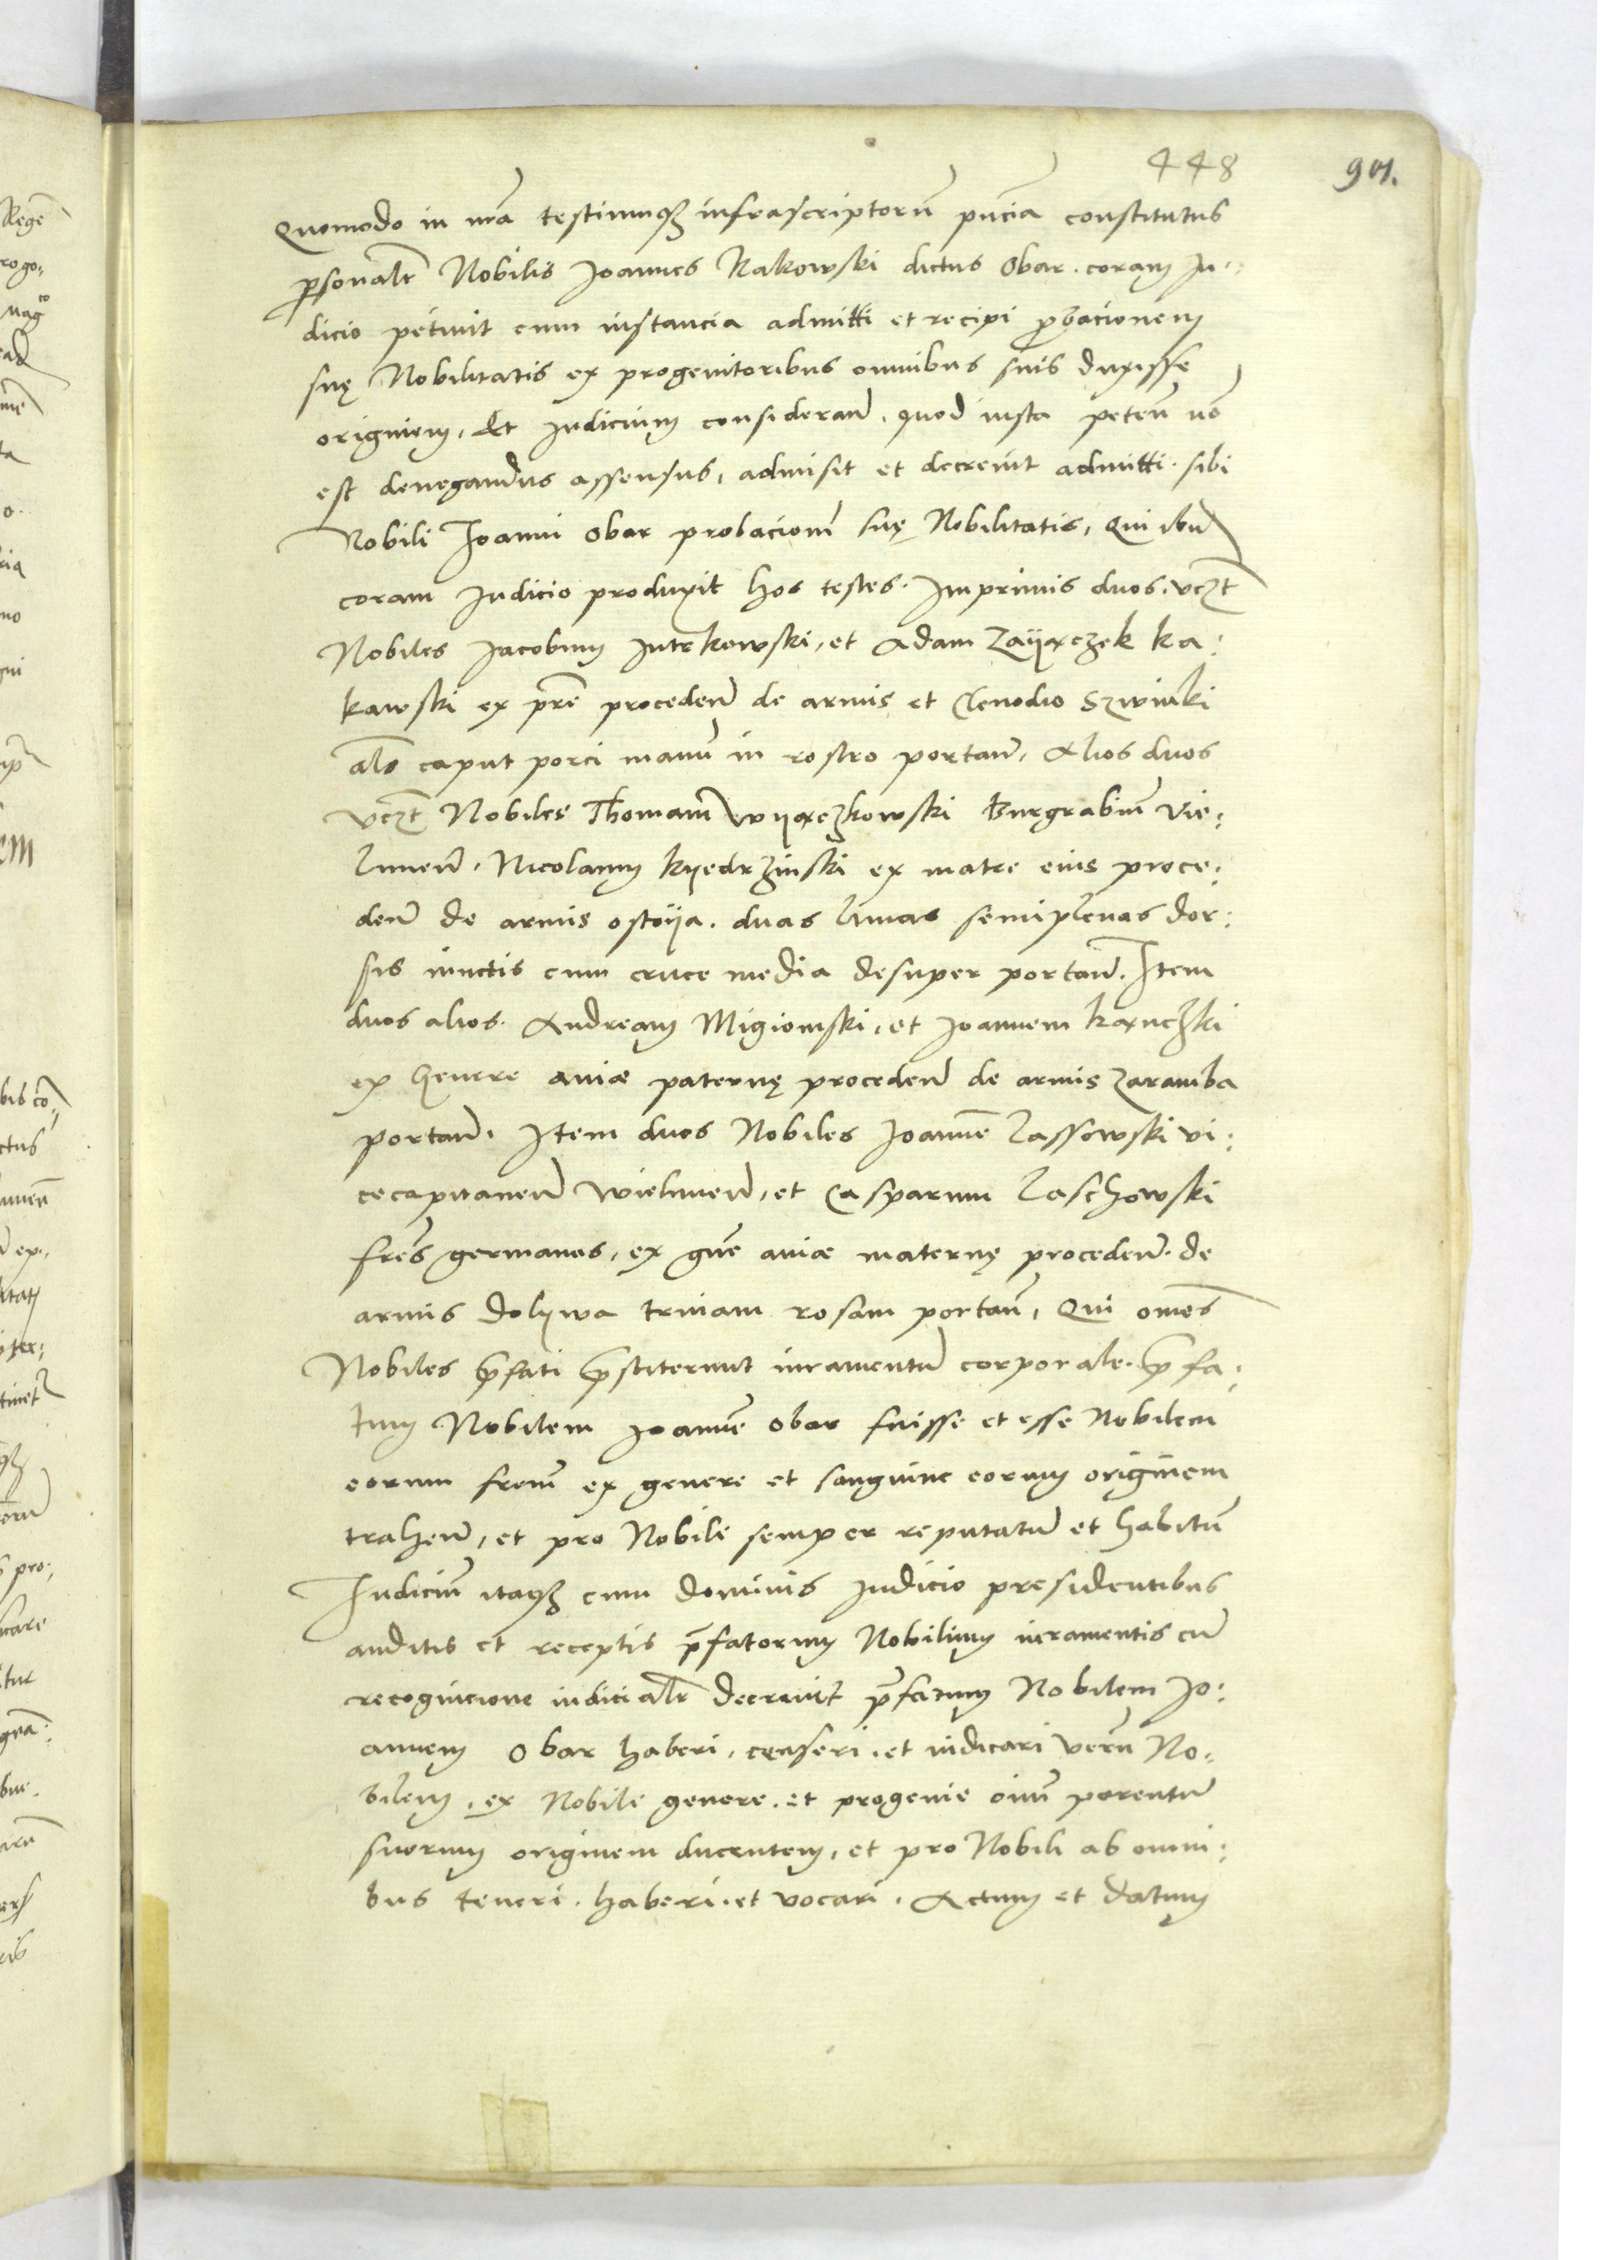 448
901.
Quomodo in nrã testiumqȝ infrascriptorũ pñcia constitutus
psonalr Nobilis Joannes Rakowski dictus Obar. coram Ju-
dicio petiuit cum instancia admitti et recipi probacionem
suę Nobilitatis ex progenitoribus omnibus suis duxisse
originem, Et Judicium consideran̄, quod iusta peten̄ nõ
est denegandus assensus, admisit et decreuit admitti sibi
Nobili Joanni Obar probacionẽ suę Nobilitatis, Qui ibid
coram Judicio produxit hos testes. Imprimis duos, vczt
Nobiles Jacobum Jutrkowski, et Adam Zaijączek Ka:
kawski ex pr̃e proceden̄ de armis et Clenodio Szwinki
als caput porci manũ in rostro portan̄, Alios duos
vczt Nobiles Thomam Wijączkowski Burgrabiũ Vie:
lunen̄, Nicolaum Kyedrzinski ex matre eius proce:
den̄ de armis ostoija. duas lunas semiplenas dor:
sis iunctis cum cruce media desuper portan̄. Item
duos alios. Andream Migiomski, et Joannem Kąnczki
ex Genere auiæ paternę proceden̄ de armis Zaramba
portan̄. Item duos Nobiles Joannẽ Lassowski vi:
cecapitaneũ Wielunen̄, et Casparum Laschowski
fr̃es germanos, ex gñe auiæ maternę proceden̄. de
armis Dolijwa trinam rosam portan̄, Qui omẽs
Nobiles p̃fati p̃stiterunt iuramentũ corporale. p̃fa:
tum Nobilem Joannẽ Obar fuisse et esse Nobilem
eorum fr̃em ex genere et sanguine eorum originem
trahen̄, et pro Nobili semper reputatũ et habitũ
Judiciũ itaqȝ cum Dominis Judicio presidentibus
auditis et receptis p̃fatorum Nobilium iuramentis cũ
recognicione iudicialr decreuit p̃fatum Nobilem Jo:
annem Obar haberi, censeri, et iudicari verũ No:
bilem, ex Nobile genere, et progenie oim̃ parentũ
suorum originem ducentem, et pro Nobili ab omni:
bus teneri, haberi, et vocari. Actum et datum